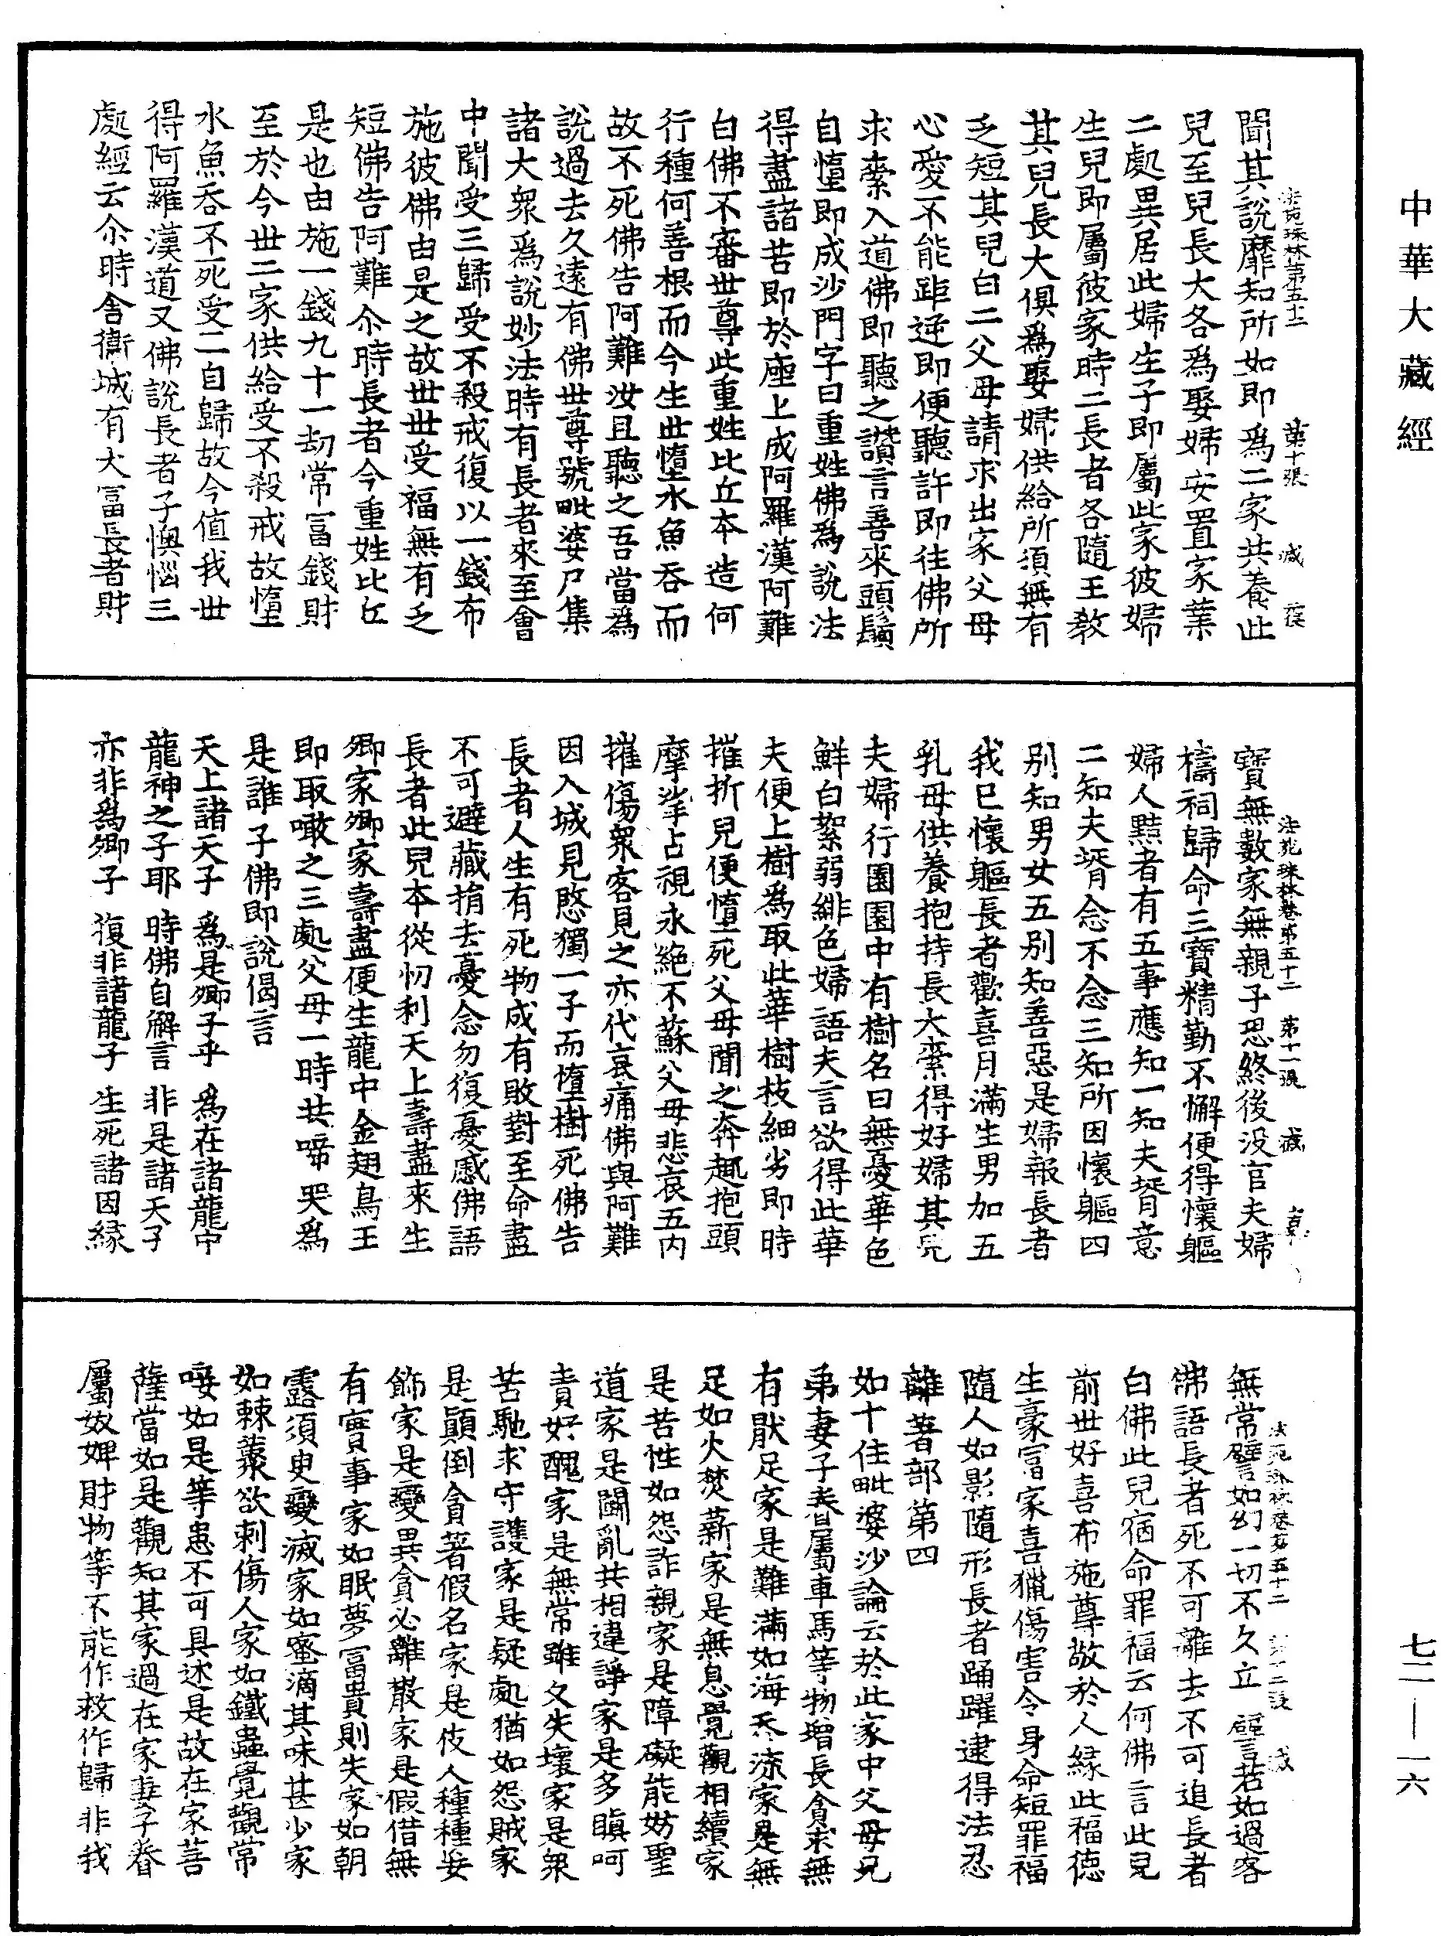 中華大藏經
法苑珠林第五十二 第十張 減
聞其說靡知所如即爲二家共養此
兒至兒長大各爲娶婦安置家業
二處異居此婦生子即屬此家彼婦
生兒即屬彼家時二長者各隨王教
其兒長大俱爲娶婦供給所須無有
乏短其兒白二父母請求出家父母
心愛不能距逆即便聽許即往佛所
求索入道佛即聽之讚言善來頭鬚
自墮即成沙門字曰重姓佛爲說法
得盡諸苦即於座上成阿羅漢阿難
白佛不審世尊此重姓比丘本造何
行種何善根而今生世墮水魚吞而
故不死佛告阿難汝且聽之吾當爲
說過去久遠有佛世尊號毗婆尸集
諸大衆爲說妙法時有長者來至會
中聞受三歸受不殺戒復以一錢布
施彼佛由是之故世世受福無有乏
短佛告阿難尒時長者今重姓比丘
是也由施一錢九十一劫常富錢財
至於今世二家供給受不殺戒故墮
水魚吞不死受二自歸故今值我世
得阿羅漢道又佛說長者子懊惱三
處經云尒時舍衛城有大冨長者財
法苑珠林卷第五十二 第十一張 減
寶無數家無親子恐終後没官夫婦
檮祠歸命三寶精勤不懈便得懷軀
婦人黠者有五事應知一知夫壻意
二知夫壻念不念三知所因懷軀四
別知男女五別知善惡是婦報長者
我已懷軀長者歡喜月滿生男加五
乳母供養抱持長大索得好婦其兒
夫婦行園園中有樹名曰無憂華色
鮮白絮弱緋色婦語夫言欲得此華
夫便上樹爲取此華樹枝細劣即時
摧折兒便墮死父母聞之奔趣抱頭
摩挲占視永絕不蘇父母悲哀五内
摧傷衆客見之亦代哀痛佛與阿難
因入城見愍獨一子而墮樹死佛告
長者人生有死物成有敗對至命盡
不可避藏捐去憂念勿復憂慼佛語
長者此兒本從忉利天上壽盡來生
卿家卿家壽盡便生龍中金翅鳥王
即取噉之三處父母一時共啼哭爲
是誰子佛即說偈言
天上諸天子 爲是卿子乎 爲在諸龍中
龍神之子耶 時佛自解言 非是諸天子
亦非爲卿子 復非諸龍子 生死諸因緣
法苑珠林卷第五十二 第十二張 減
無常譬如幻一切不久立 譬若如過客
佛語長者死不可離去不可追長者
白佛此兒宿命罪福云何佛言此兒
前世好喜布施尊敬於人緣此福德
生豪冨家喜獵傷害令身命短罪福
隨人如影隨形長者踊躍逮得法忍
離著部第四
如十住毗婆沙論云於此家中父母兄
弟妻子眷屬車馬等物增長貪求無
有猒足家是難滿如海吞流家是無
足如火焚薪家是無息覺觀相續家
是苦性如怨詐親家是障礙能妨聖
道家是鬪亂共相違諍家是多瞋呵
責好醜家是無常雖久失壞家是衆
苦馳求守護家是疑處猶如怨賊家
是顛倒貪著假名家是伎人種種妄
飾家是變異貪必離散家是假借無
有實事家如眠夢冨貴則失家如朝
露須臾變滅家如蜜滴其味甚少家
如棘䕺欲刺傷人家如鐵蟲覺觀常
唼如是等患不可具述是故在家菩
薩當如是觀知其家過在家妻子眷
屬奴婢財物等不能作救作歸非我
七二—一六